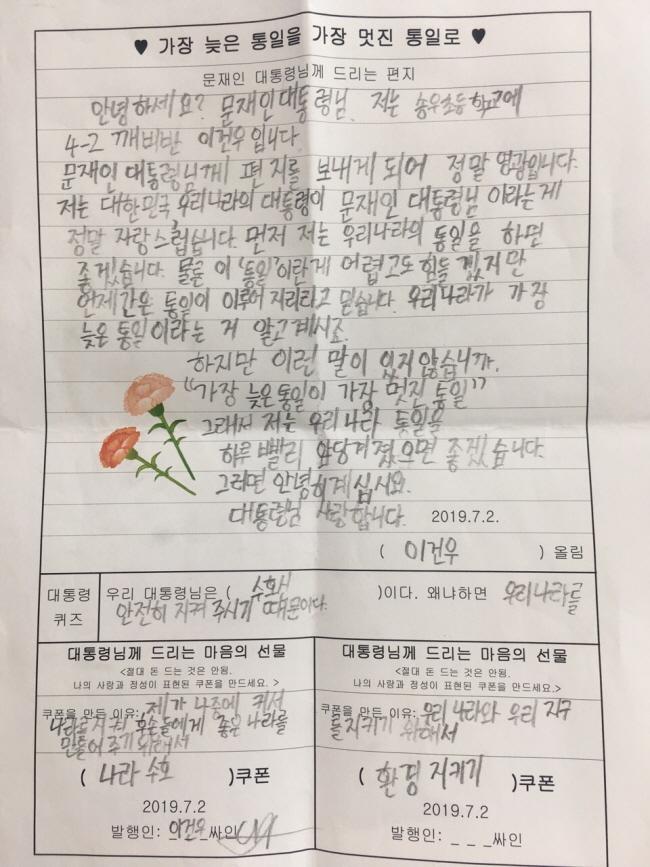 ♥ 가장 늦은 통일을 가장 멋진 통일로 ♥
문재인 대통령님께 드리는 편지
안녕하세요? 문재인대통령님. 저는 송우초등학교에
4-2 깨비반 이건우입니다.
문재인 대통령님께 편지를 보내게 되어 정말 영광입니다.
저는 대한민국 우리나라의 대통령이 문재인 대통령님 이라는게
정말 자랑스럽습니다. 먼저 저는 우리나라의 통일을 하면
좋겠습니다. 물론 이 '통일'이란게 어렵고도 힘들겠지만
언제간은 통일이 이루어지리라고 믿습니다. 우리나라가 가장
늦은 통일이라는 거 알고계시죠.
하지만 이런 말이 있지않습니까.
"가장 늦은통일이 가장 멋진 통일"
그래서 저는 우리나라 통일을
하루 빨리 앞당겨졌으면 좋겠습니다.
그러면 안녕히계십시요.
대통령님 사랑합니다. 2019.7.2.
( 이건우 ) 올림
대통령
퀴즈
우리 대통령님은 ( 수호시 )이다. 왜냐하면 우리나라를
안전히 지켜 주시기 때문이다.
대통령님께 드리는 마음의 선물
<절대 돈 드는 것은 안됨.
나의 사랑과 정성이 표현된 쿠폰을 만드세요.>
쿠폰을 만든 이유: 제가 나중에 커서
나라를 지켜 후손들에게 좋은 나라를
만들어 주기 위해서
( 나라 수호 )쿠폰
2019.7.2
발행인: 이건우 싸인
대통령님께 드리는 마음의 선물
<절대 돈 드는 것은 안됨.
나의 사랑과 정성이 표현된 쿠폰을 만드세요.>
쿠폰을 만든 이유: 우리 나라와 우리 지구
를지키기 위해서
( 환경 지키기 )쿠폰
2019.7.2
발행인: _ _ _싸인